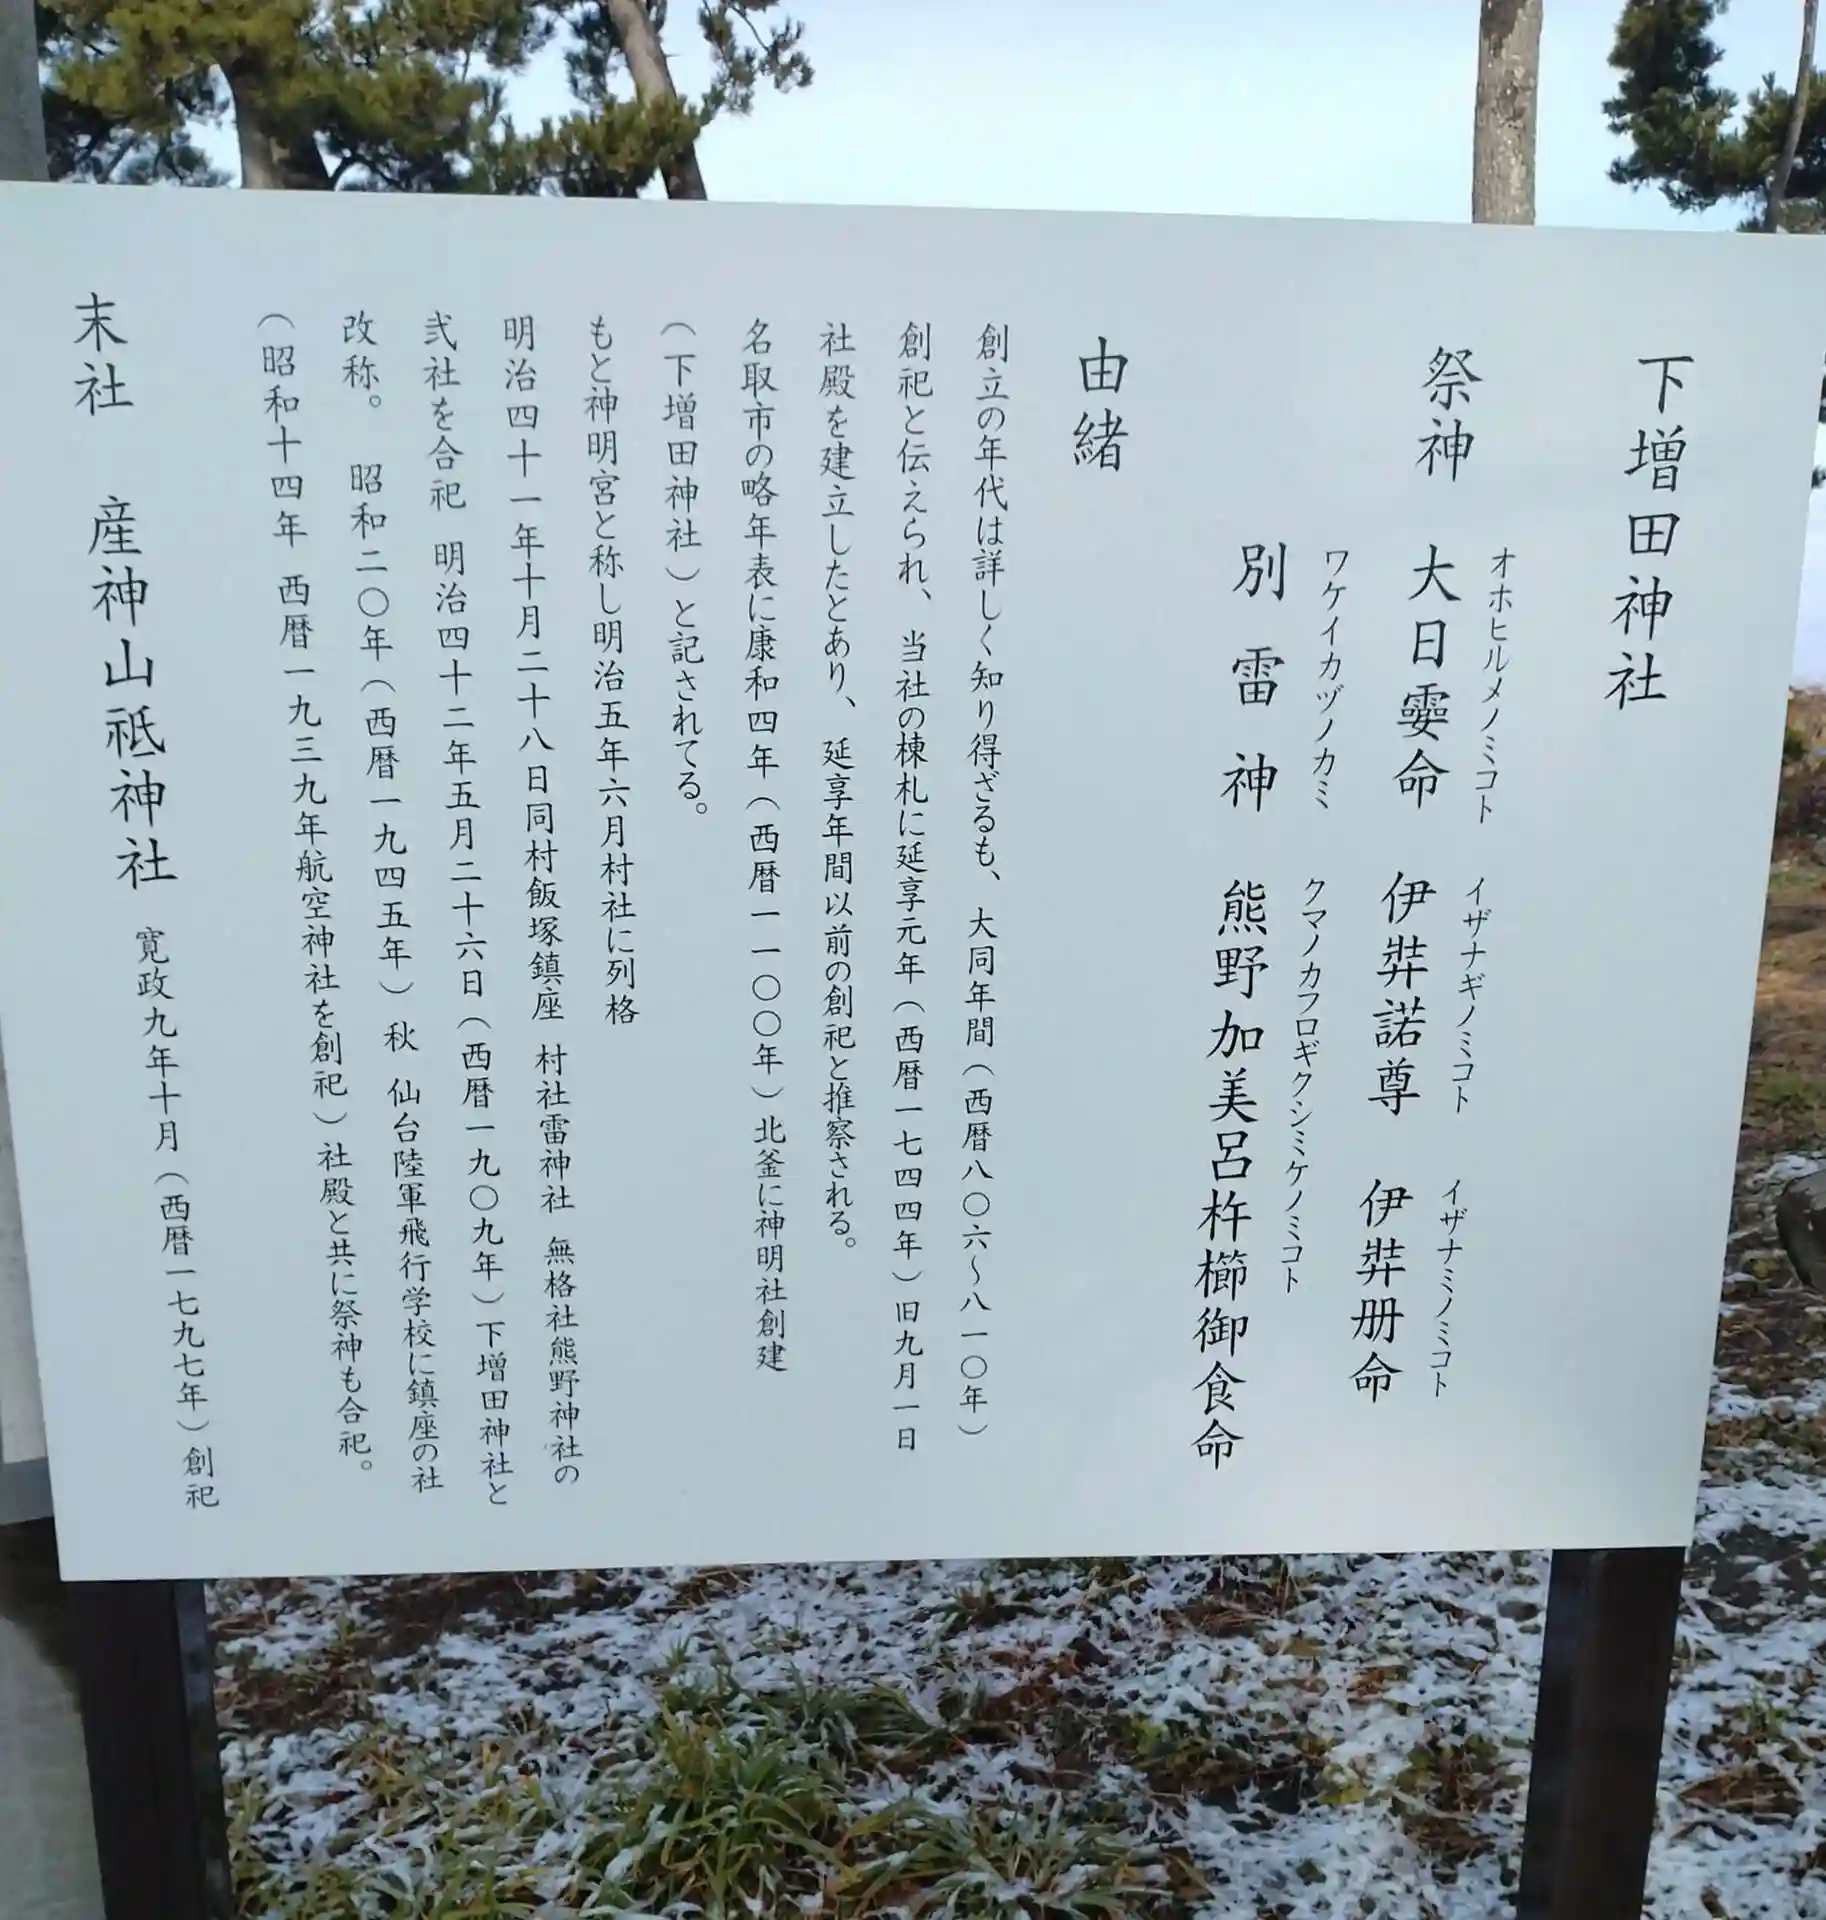 下増田神社
オホヒルメノミコト イザナギノミコト イザナミノミコト
祭神 大日孁命 伊弉諾尊 伊弉册命
ワケイカヅノカミ クマノカフロギクシミケノミコト
別雷神 熊野加美呂杵櫛御食命
由緒
創立の年代は詳しく知り得ざるも、大同年間(西暦八〇六〜八一〇年)
創祀と伝えられ、当社の棟札に延享元年(西暦一七四四年)旧九月一日
社殿を建立したとあり、延享年間以前の創祀と推察される。
名取市の略年表に康和四年(西暦一一〇〇年)北釜に神明社創建
(下増田神社)と記されてる。
もと神明宮と称し明治五年六月村社に列格
明治四十一年十月二十八日同村飯塚鎮座 村社雷神社 無格社熊野神社の
弐社を合祀 明治四十二年五月二十六日(西暦一九〇九年)下増田神社と
改称。 昭和二〇年(西暦一九四五年)秋 仙台陸軍飛行学校に鎮座の社
(昭和十四年 西暦一九三九年航空神社を創祀)社殿と共に祭神も合祀。
末社 産神山祗神社 寛政九年十月(西暦一七九七年)創祀